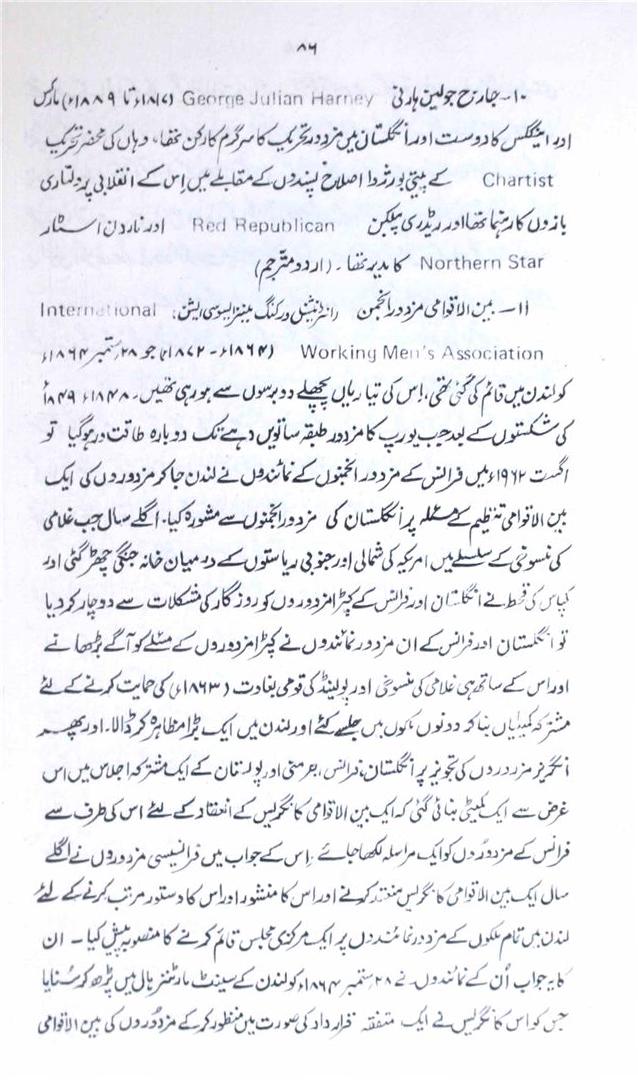 ۸۶
۱۰۔ جارج جولین ہارنی George Julian Harney (۱۸۱۷ء تا ۱۸۸۹ء) مارکس
اور اینگلس کا دوست اور انگلستان میں مزدور تحریک کا سرگرم کارکن تھا، وہاں کی محضر تحریک
Chartist کے پیٹی بورژوا اصلاح پسندوں کے مقابلے میں اس کے انقلابی پرولتاری
بازوں کا رہنما تھا اور ریڈ ری پبلیکن Red Republican اور ناردن اسٹار
Northern Star کا مدیر تھا۔ (اردو مترجم)
۱۱۔ بین الاقوامی مزدور انجمن (انٹرنیشنل ورکنگ مینز ایسوسی ایشن: International
Working Men's Association (۱۸۶۴ء - ۱۸۷۲ء) جو ۲۸ ستمبر ۱۸۶۴ء
کو لندن میں قائم کی گئی تھی، اس کی تیاریاں پچھلے دو برسوں سے ہو رہی تھیں۔ ۱۸۴۸ء ۱۸۴۹ء
کی شکستوں کے بعد جب یورپ کا مزدور طبقہ ساتویں دہے تک دوبارہ طاقت ور ہو گیا تو
اگست ۱۹۶۲ء میں فرانس کے مزدور انجمنوں کے نمائندوں نے لندن جا کر مزدوروں کی ایک
بین الاقوامی تنظیم کے مسئلہ پر انگلستان کی مزدور انجمنوں سے مشورہ کیا۔ اگلے سال جب غلامی
کی منسوخی کے سلسلے میں امریکہ کی شمالی اور جنوبی ریاستوں کے درمیان خانہ جنگی چھڑ گئی اور
کپاس کی قحط نے انگلستان اور فرانس کے کپڑا مزدوروں کو روزگار کی مشکلات سے دوچار کر دیا
تو انگلستان اور فرانس کے ان مزدور نمائندوں نے کپڑا مزدوروں کے مسئلے کو آگے بڑھانے
اور اس کے ساتھ ہی غلامی کی منسوخی اور پولینڈ کی قومی بغاوت (۱۸۶۳ء) کی حمایت کرنے کے لئے
مشترکہ کمیٹیاں بنا کر دونوں ملکوں میں جلسے کئے اور لندن میں ایک بڑا مظاہرہ کر ڈالا۔ اور پھر
انگریز مزدروں کی تجویز پر انگلستان، فرانس، جرمنی اور پولستان کے ایک مشترکہ اجلاس میں اس
غرض سے ایک کمیٹی بنائی گئی کہ ایک بین الاقوامی کانگریس کے انعقاد کے لئے اس کی طرف سے
فرانس کے مزدوروں کو ایک مراسلہ لکھا جائے۔ اس کے جواب میں فرانسیسی مزدوروں نے اگلے
سال ایک بین الاقوامی کانگریس منعقد کرنے اور اس کا منشور اور اس کا دستور مرتب کرنے کے لئے
لندن میں تمام ملکوں کے مزدور نمائندوں پر ایک مرکزی مجلس قائم کرنے کا منصوبہ پیش کیا۔ ان
کا یہ جواب اُن کے نمائندوں نے ۲۸ ستمبر ۱۸۶۴ء کو لندن کے سینٹ مارٹنز ہال میں پڑھ کر سُنایا
جس کو اس کانگریس نے ایک متفقہ قرارداد کی صورت میں منظور کر کے مزدوروں کی بین الاقوامی